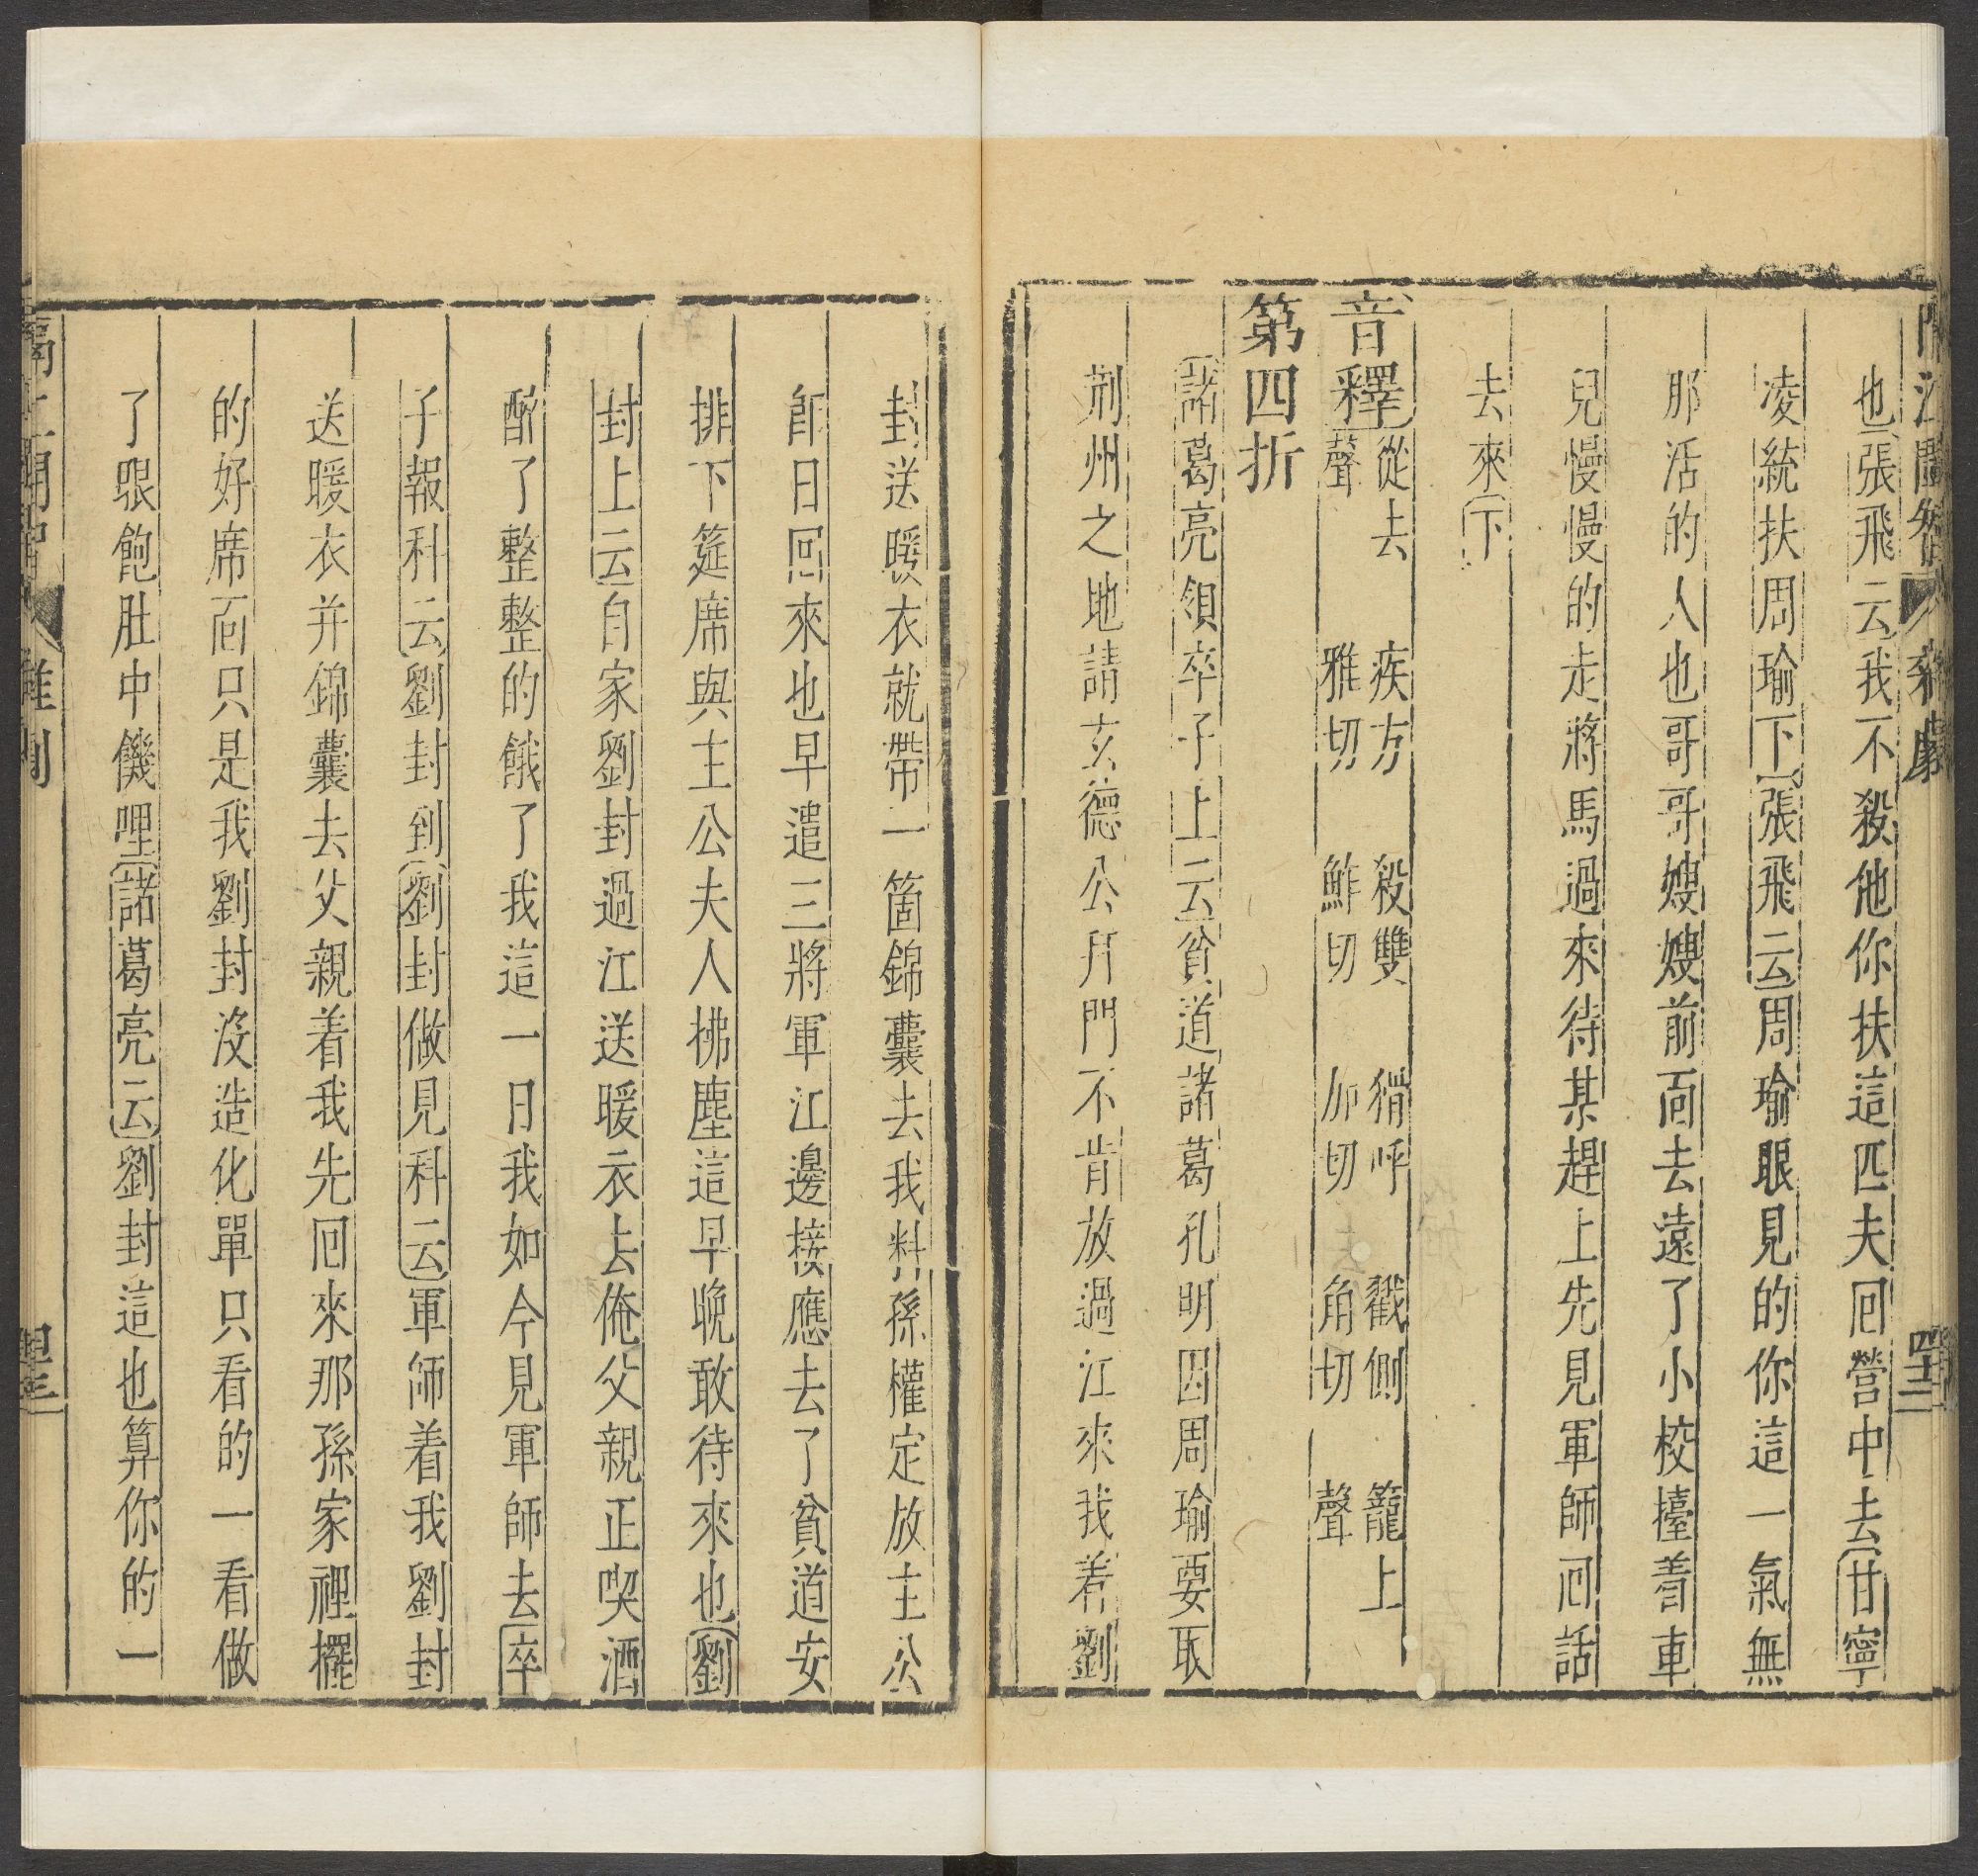 隔江鬭智 雜劇 四十二
也張飛云我不殺他你扶這匹夫回營中去甘寧
凌統扶周瑜下張飛云周瑜眼見的你這一氣無
那活的人也哥哥嫂嫂前面去遠了小校擡着車
兒慢慢的走將馬過來待某趕上先見軍師回話
去來下
音釋 從去聲 疾方雅切 殺雙鮓切 猾呼加切 戳側角切 籠上聲
第四折
諸葛亮領卒子上云貧道諸葛孔明因周瑜要取
荊州之地請玄德公拜門不肯放過江來我着劉
封送暖衣就帶一箇錦囊去我料孫權定放主公
即日回來也早遣三將軍江邊接應去了貧道安
排下筵席與主公夫人拂塵這早晚敢待來也劉
封上云自家劉封過江送暖衣去俺父親正喫酒
醉了整整的餓了我這一日我如今見軍師去卒
子報科云劉封到劉封做見科云軍師着我劉封
送暖衣并錦囊去父親着我先回來那孫家裡擺
的好席面只是我劉封沒造化單只看的一看做
了眼飽肚中饑哩諸葛亮云劉封這也算你的一
隔江鬭智 雜劇 四十三